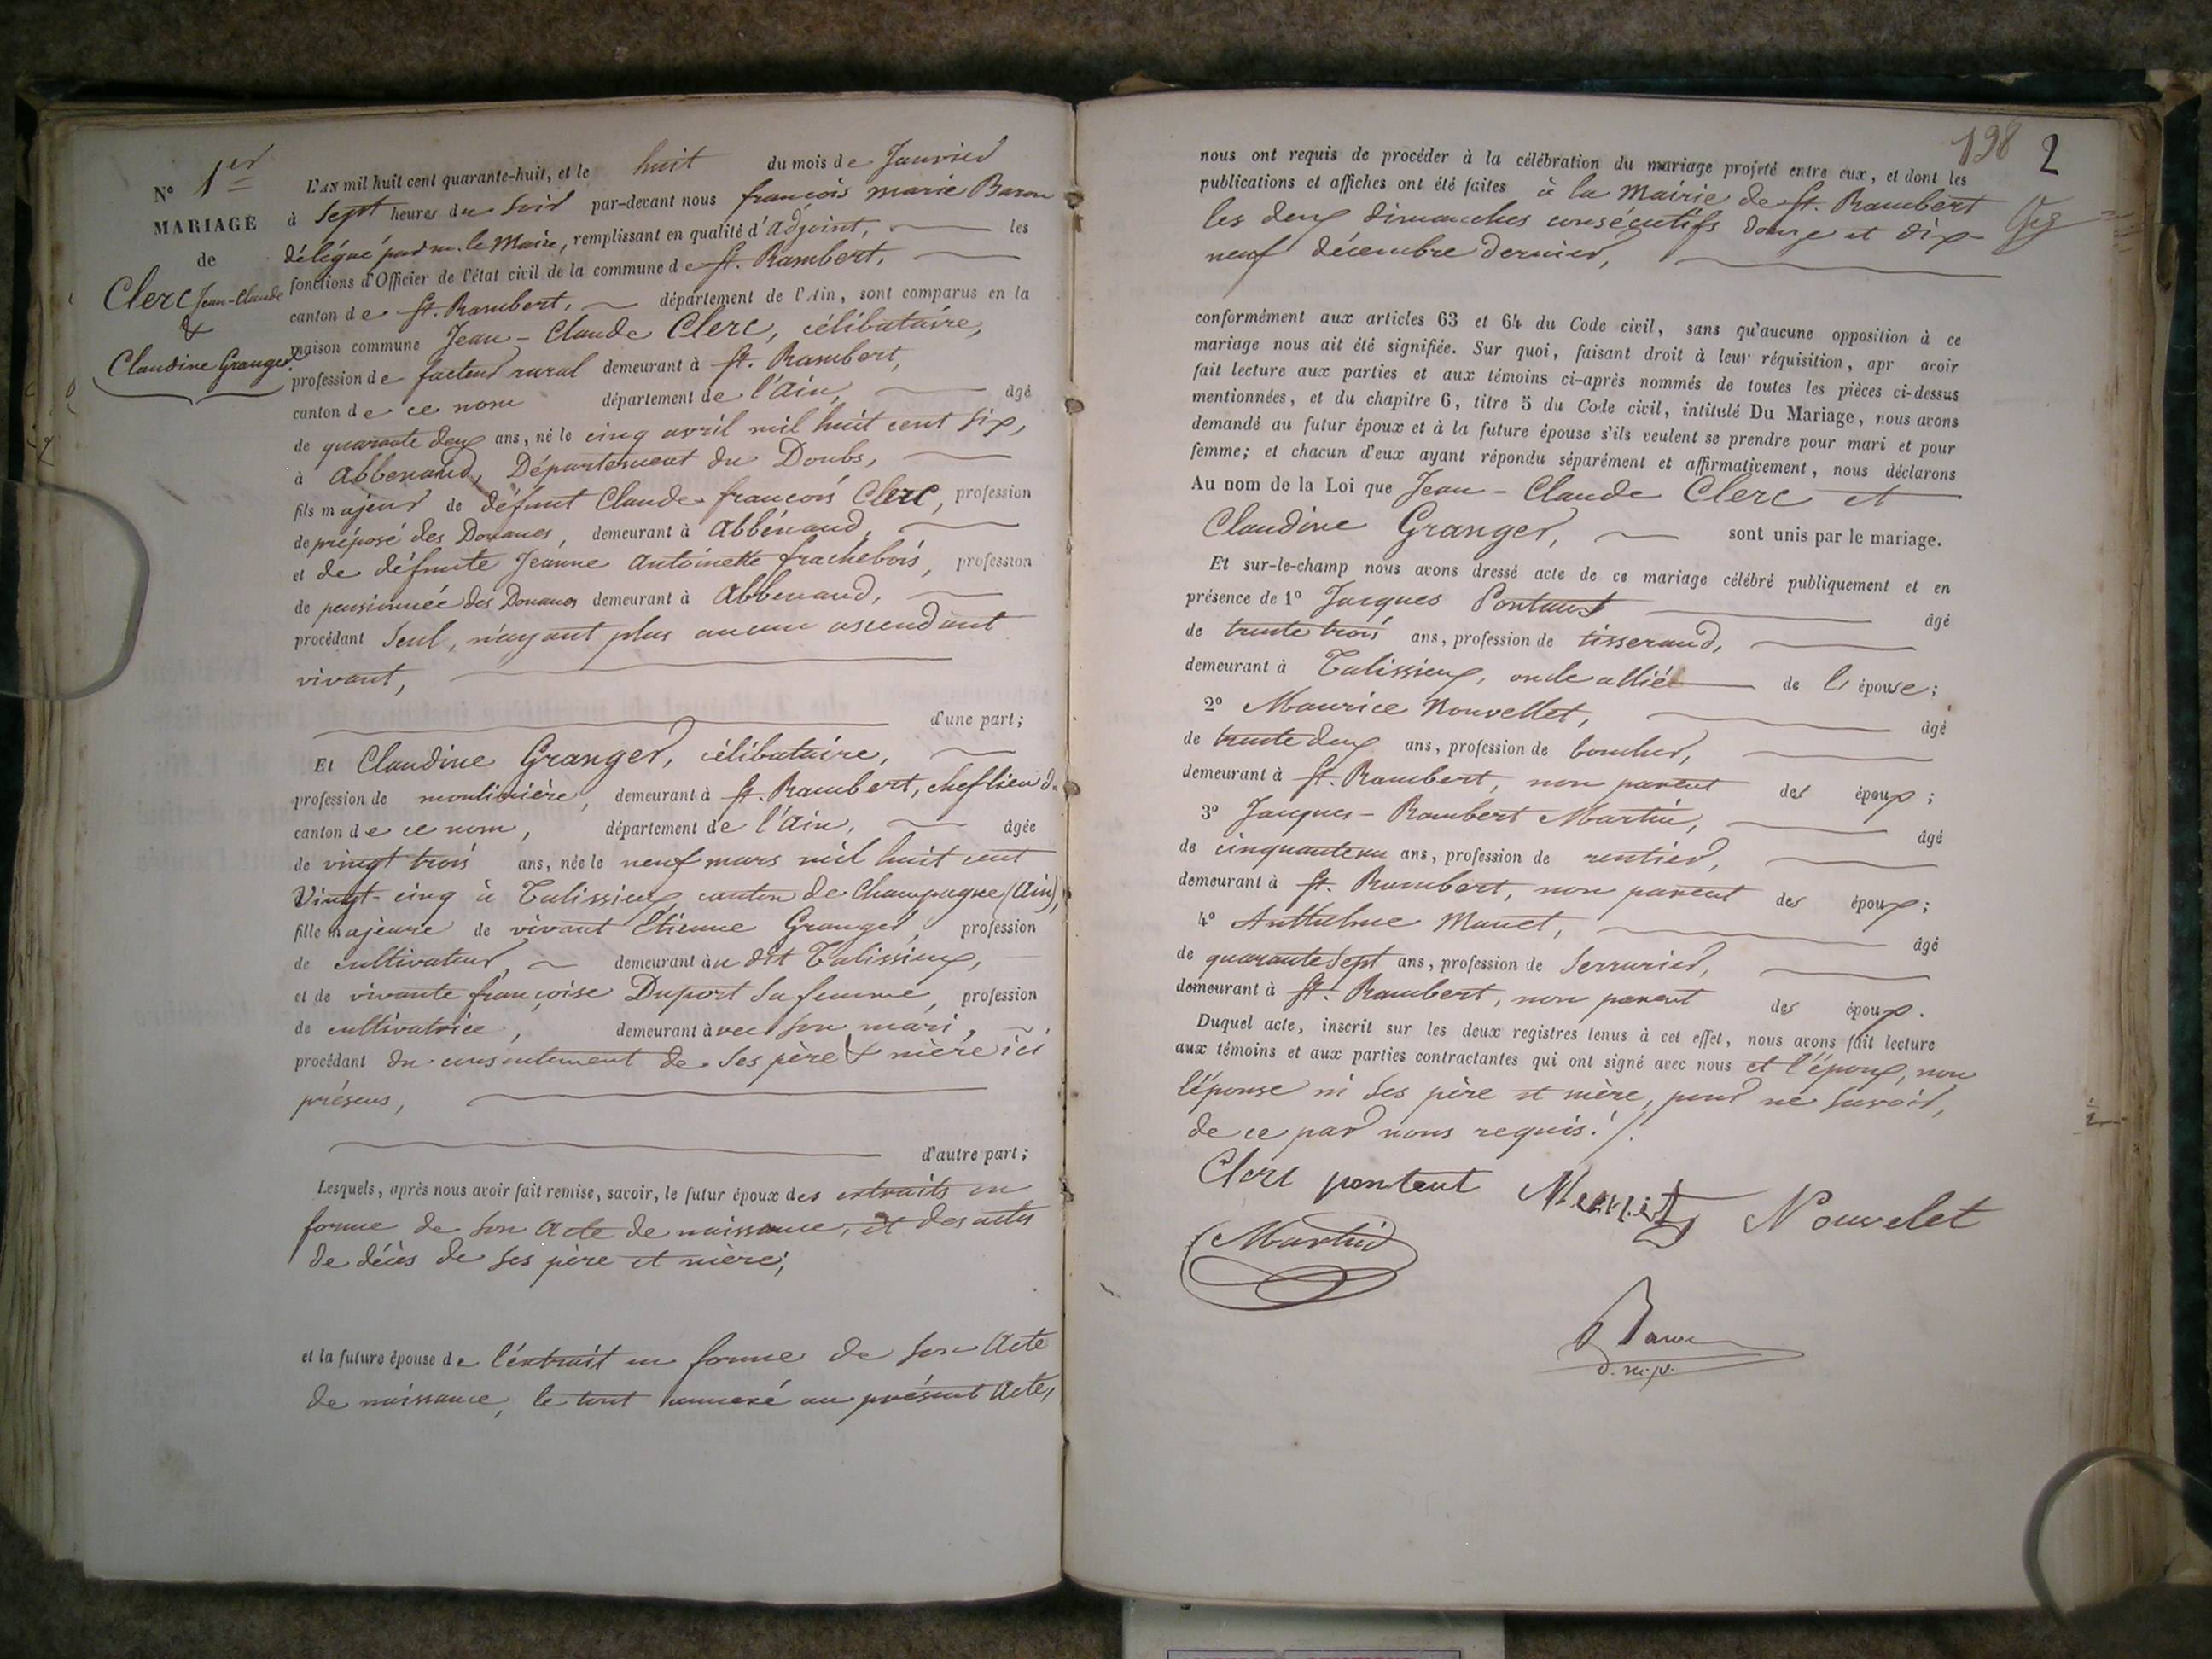 N° 1er
MARIAGE
de
Clerc Jean-Claude
&
Claudine Granger.
L'AN mil huit cent quarante-huit, et le huit du mois de Janvier
à Sept heures du Soir par-devant nous françois marie Baron
délégué par m. le Maire, remplissant en qualité d'adjoint, les
fonctions d'Officier de l'état civil de la commune de St. Rambert,
canton de St. Rambert, département de l'Ain, sont comparus en la
maison commune Jean-Claude Clerc, célibataire,
profession de facteur rural demeurant à St. Rambert,
canton de ce nom département de l'Ain, âgé
de quarante deux ans, né le cinq avril mil huit cent six,
à Abbenand, Département du Doubs,
fils majeur de défunt Claude françois Clerc, profession
de préposé des Douanes, demeurant à Abbénand,
et de défunte Jeanne Antoinette frachebois, profession
de pensionnée des Douanes demeurant à Abbenand,
procédant Seul, n'ayant plus aucun ascendant
vivant,
d'une part;
Et Claudine Granger, célibataire,
profession de moulinière, demeurant à St. Rambert, chef lieu d.
canton de ce nom, département de l'Ain, âgée
de vingt trois ans, née le neuf mars mil huit cent
Vingt-cinq à Talissieux canton de Champagne (Ain),
fille majeure de vivant Etienne Granger, profession
de cultivateur, demeurant au dit Talissieux,
et de vivante françoise Duport Sa femme, profession
de cultivatrice, demeurant avec son mari,
procédant du consentement de Ses père & mère ici
présens,
d'autre part;
Lesquels, après nous avoir fait remise, savoir, le futur époux des extraits en
forme de son Acte de naissance, et des actes
de décès de ses père et mère;
et la future épouse de l'extrait en forme de son Acte
de naissance, le tout annexé au présent Acte,
198 2
nous ont requis de procéder à la célébration du mariage projeté entre eux, et dont les
publications et affiches ont été faites à la Mairie de St. Rambert
les deux dimanches consécutifs douze et dix-
neuf décembre dernier,
conformément aux articles 63 et 64 du Code civil, sans qu'aucune opposition à ce
mariage nous ait été signifiée. Sur quoi, faisant droit à leur réquisition, apr avoir
fait lecture aux parties et aux témoins ci-après nommés de toutes les pièces ci-dessus
mentionnées, et du chapitre 6, titre 5 du Code civil, intitulé Du Mariage, nous avons
demandé au futur époux et à la future épouse s'ils veulent se prendre pour mari et pour
femme; et chacun d'eux ayant répondu séparément et affirmativement, nous déclarons
Au nom de la Loi que Jean-Claude Clerc et
Claudine Granger, sont unis par le mariage.
Et sur-le-champ nous avons dressé acte de ce mariage célébré publiquement et en
présence de 1° Jacques Pontaut âgé
de trente trois ans, profession de tisserand,
demeurant à Talissieux, oncle allié de l'épouse;
2° Maurice Nouvellet, âgé
de trente deux ans, profession de boucher,
demeurant à St. Rambert, non parent des époux;
3° Jacques-Rambert Martin, âgé
de cinquante un ans, profession de rentier,
demeurant à St. Rambert, non parent des époux;
4° Anthelme Manet, âgé
de quarante Sept ans, profession de Serrurier,
demeurant à St. Rambert, non parent des époux.
Duquel acte, inscrit sur les deux registres tenus à cet effet, nous avons fait lecture
aux témoins et aux parties contractantes qui ont signé avec nous et l'époux, non
l'épouse ni ses père et mère, pour ne savoir,
de ce par nous requis./.
Clerc pontent Nouvelet
Martin
Baron
d. m. p.